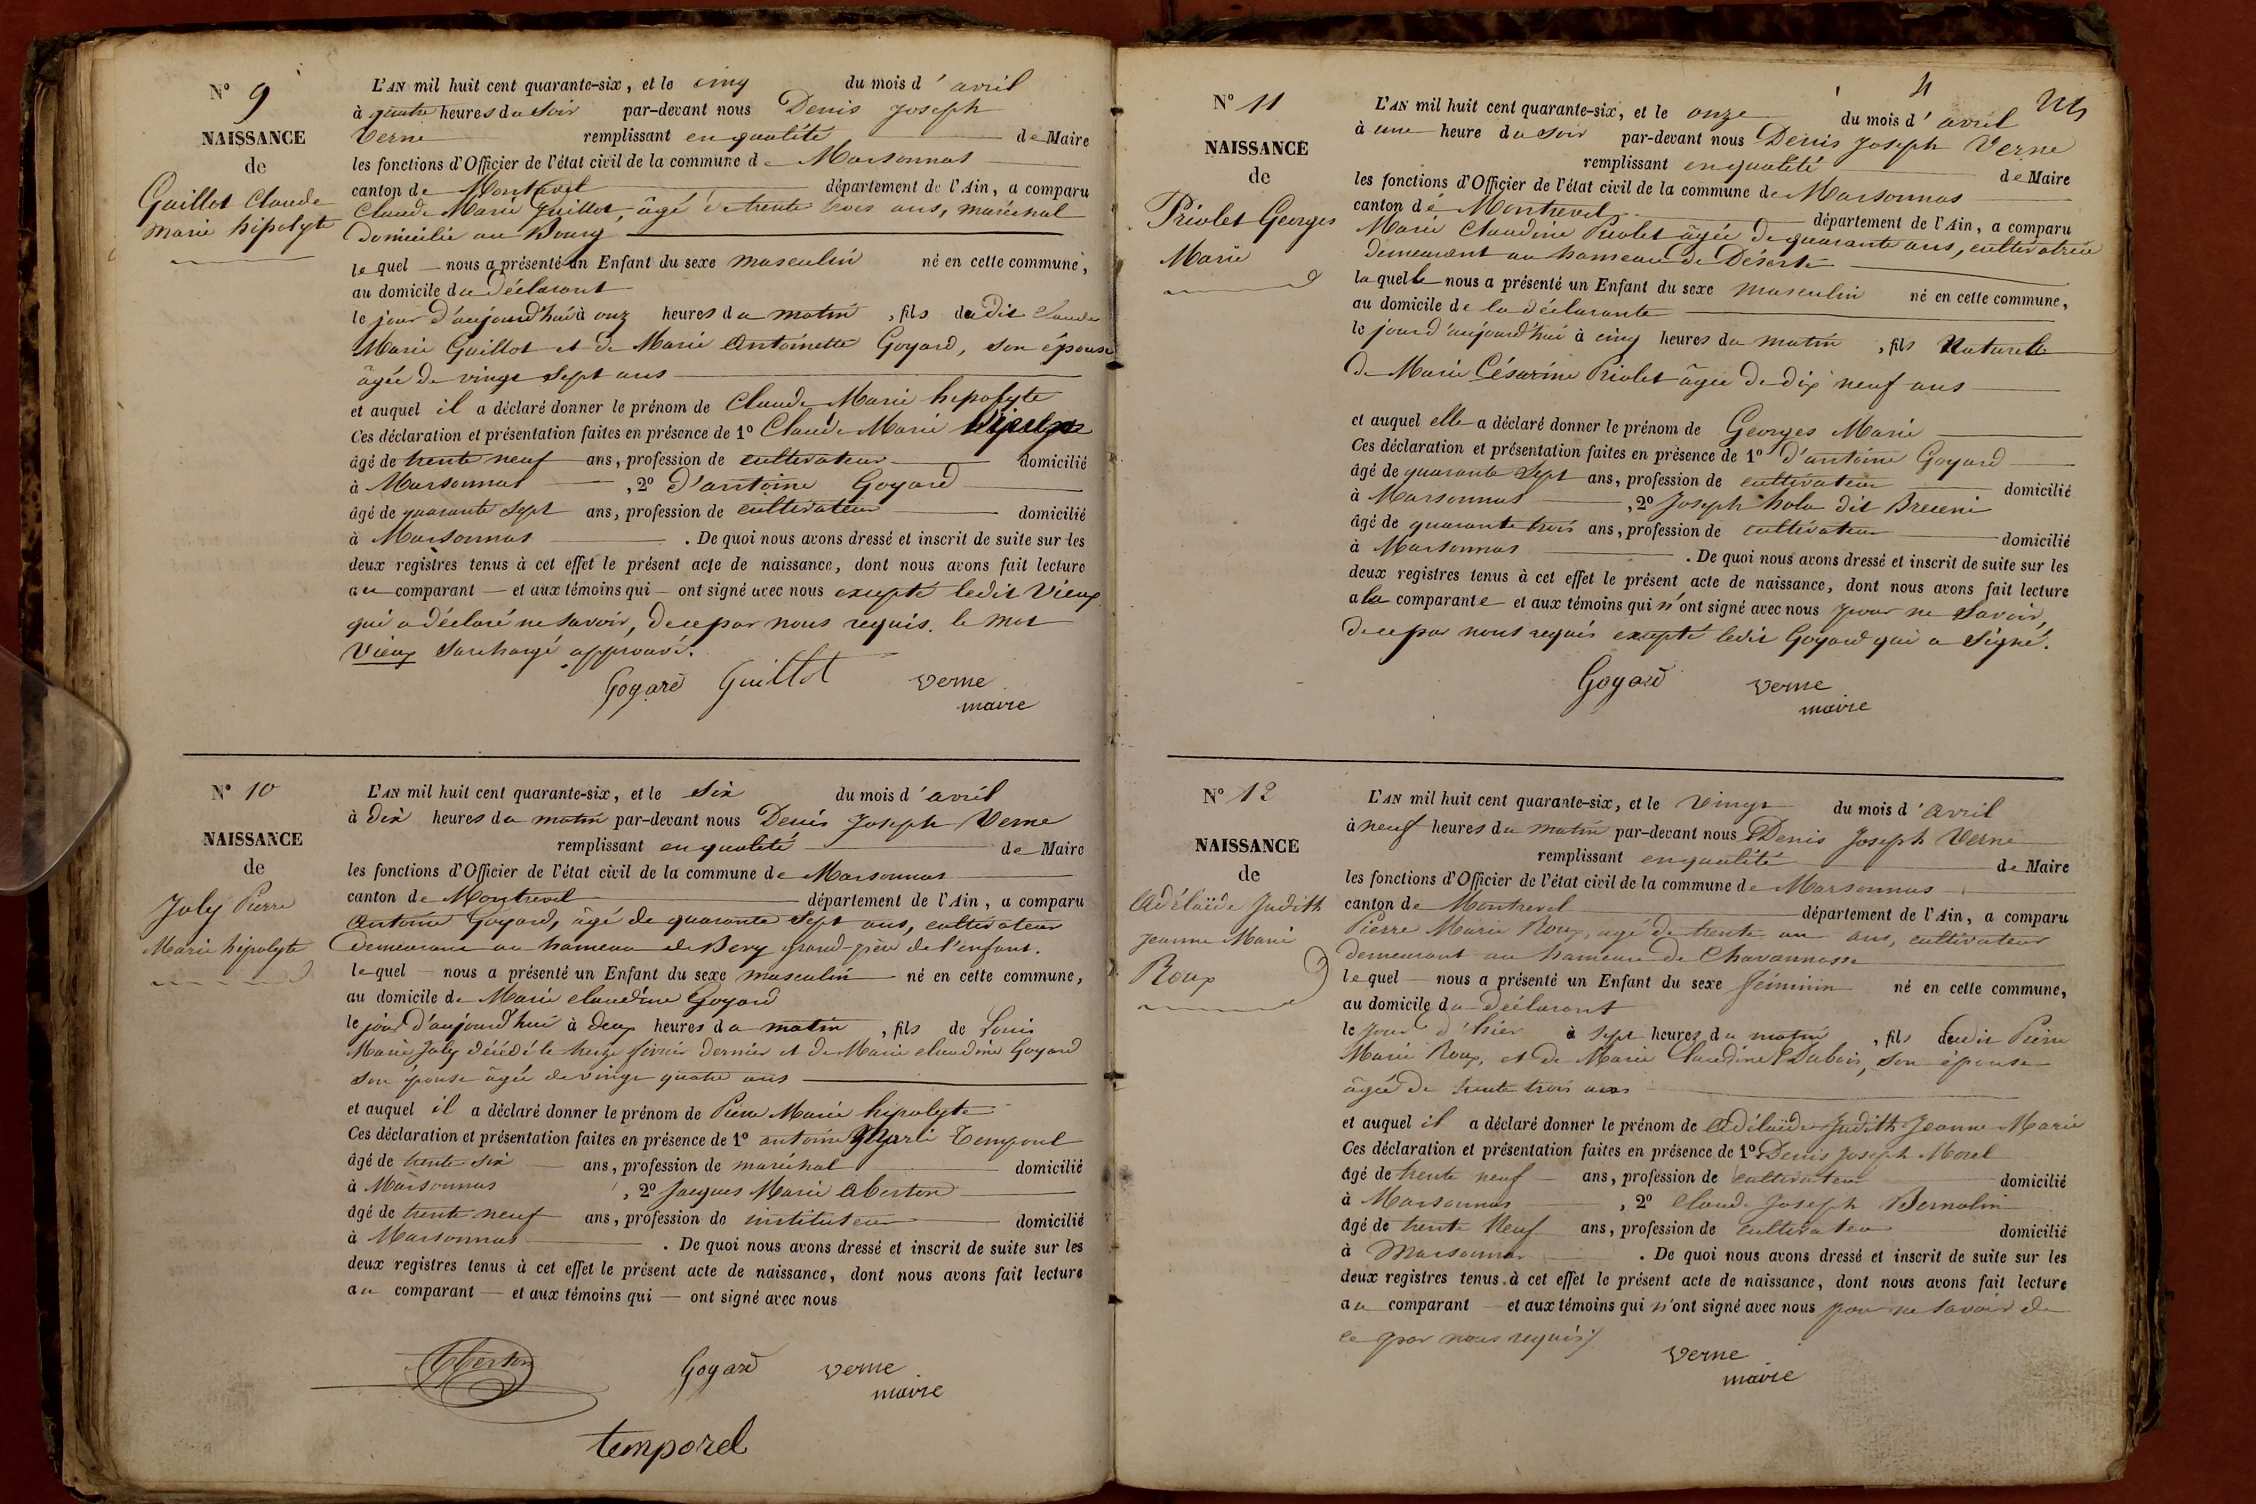 N° 9
NAISSANCE
de
Guillot Claude
Marie hipolyte
L'AN mil huit cent quarante-six, et le cinq du mois d'avril
à quatre heures du soir par-devant nous Denis Joseph
Verne remplissant en qualité de Maire
les fonctions d'Officier de l'état civil de la commune de Marsonnas
canton de Montrevel département de l'Ain, a comparu
Claude Marie Guillot, âgé de trente trois ans, maréchal
domicilié au Bourg
lequel nous a présenté un Enfant du sexe masculin né en cette commune,
au domicile du déclarant
le jour d'aujourd'hui à onz heures du matin, fils du dit Claude
Marie Guillot et de Marie Antoinette Goyard, son épouse
âgée de vingt sept ans
et auquel il a déclaré donner le prénom de Claude Marie hipolyte
Ces déclaration et présentation faites en présence de 1° Claude Marie
âgé de trente neuf ans, profession de cultivateur domicilié
à Marsonnas, 2° d'antoine Goyard
âgé de quarante sept ans, profession de cultivateur domicilié
à Marsonnas. De quoi nous avons dressé et inscrit de suite sur les
deux registres tenus à cet effet le présent acte de naissance, dont nous avons fait lecture
au comparant et aux témoins qui ont signé avec nous excepté ledit Vieux
qui a déclaré ne savoir, de ce par nous requis. le mot
Vieux surchargé approuvé.
Goyard Guillot Verne
maire
N° 10
NAISSANCE
de
Joly Pierre
Marie hipolyte
L'AN mil huit cent quarante-six, et le six du mois d'avril
à dix heures du matin par-devant nous Denis Joseph Verne
remplissant en qualité de Maire
les fonctions d'Officier de l'état civil de la commune de Marsonnas
canton de Montrevel département de l'Ain, a comparu
Antoine Goyard, âgé de quarante sept ans, cultivateur
demeurant au hameau de Bery grand-père de l'enfant.
lequel nous a présenté un Enfant du sexe masculin né en cette commune,
au domicile de Marie claudine Goyard
le jour d'aujourd'hui à deux heures du matin, fils de Louis
Marie Joly décédé le treize février dernier et de Marie claudine Goyard
son épouse âgée de vingt quatre ans
et auquel il a déclaré donner le prénom de Pierre Marie hipolyte
Ces déclaration et présentation faites en présence de 1° antoine Marie Temporel
âgé de trente six ans, profession de maréchal domicilié
à Marsonnas, 2° Jacques Marie Aberton
âgé de trente neuf ans, profession de instituteur domicilié
à Marsonnas. De quoi nous avons dressé et inscrit de suite sur les
deux registres tenus à cet effet le présent acte de naissance, dont nous avons fait lecture
au comparant et aux témoins qui ont signé avec nous
Aberton Goyard Verne
maire
temporel
4
N° 11
NAISSANCE
de
Priolet Georges
Marie
L'AN mil huit cent quarante-six, et le onze du mois d'avril
à une heure du soir par-devant nous Denis Joseph Verne
remplissant en qualité de Maire
les fonctions d'Officier de l'état civil de la commune de Marsonnas
canton de Montrevel département de l'Ain, a comparu
Marie Claudine Priolet âgée de quarante ans, cultivatrice
demeurant au hameau de Déserte
laquelle nous a présenté un Enfant du sexe masculin né en cette commune,
au domicile de la déclarante
le jour d'aujourd'hui à cinq heures du matin, fils Naturelle
de Marie Césarine Priolet âgée de dix neuf ans
et auquel elle a déclaré donner le prénom de Georges Marie
Ces déclaration et présentation faites en présence de 1° d'antoine Goyard
âgé de quarante sept ans, profession de cultivateur domicilié
à Marsonnas, 2° Joseph hola dit
âgé de quarante trois ans, profession de cultivateur domicilié
à Marsonnas. De quoi nous avons dressé et inscrit de suite sur les
deux registres tenus à cet effet le présent acte de naissance, dont nous avons fait lecture
a la comparante et aux témoins qui n'ont signé avec nous pour ne savoir,
de ce par nous requis excepté ledit Goyard qui a signé.
Goyard Verne
maire
N° 12
NAISSANCE
de
Adélaïde Judith
Jeanne Marie
Roux
L'AN mil huit cent quarante-six, et le vingt du mois d'avril
à neuf heures du matin par-devant nous Denis Joseph Verne
remplissant en qualité de Maire
les fonctions d'Officier de l'état civil de la commune de Marsonnas
canton de Montrevel département de l'Ain, a comparu
Pierre Marie Roux, agé de trente un ans, cultivateur
demeurant au hameau de Chavannasse
lequel nous a présenté un Enfant du sexe féminin né en cette commune,
au domicile du déclarant
le jour d'hier à sept heures du matin, fils dudit Pierre
Marie Roux, et de Marie Claudine Dubois, son épouse
âgée de trente trois ans
et auquel il a déclaré donner le prénom de Adélaïde Judith Jeanne Marie
Ces déclaration et présentation faites en présence de 1° Denis Joseph Morel
âgé de trente neuf ans, profession de cultivateur domicilié
à Marsonnas, 2° Claude Joseph Bernolin
âgé de trente Neuf ans, profession de cultivateur domicilié
à Marsonnas. De quoi nous avons dressé et inscrit de suite sur les
deux registres tenus à cet effet le présent acte de naissance, dont nous avons fait lecture
au comparant et aux témoins qui n'ont signé avec nous pour ne savoir de
ce par nous requis
Verne
maire